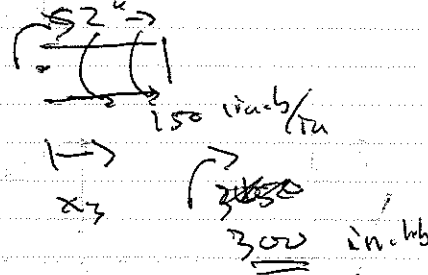 52"
150 in-lb/in
x3
300 in-lb